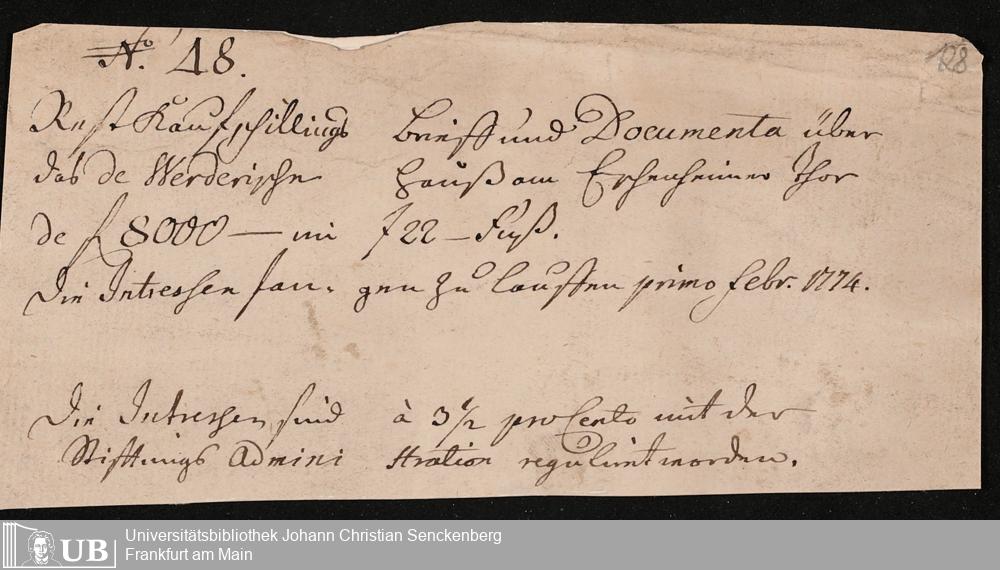 No. 48.
128
Rest Kaufschillings Brieff und Documenta über
das de Werderische Hauß am Eschenheimer Thor
de f 8000 — im f 22 – Fuß.
Die Intressen fangen zu lauffen primo Febr. 1774.
Die Intressen sind à 3 1/2 pro Cento mit der
Stifftungs Administration regulirt worden.
UB
Universitätsbibliothek Johann Christian Senckenberg
Frankfurt am Main